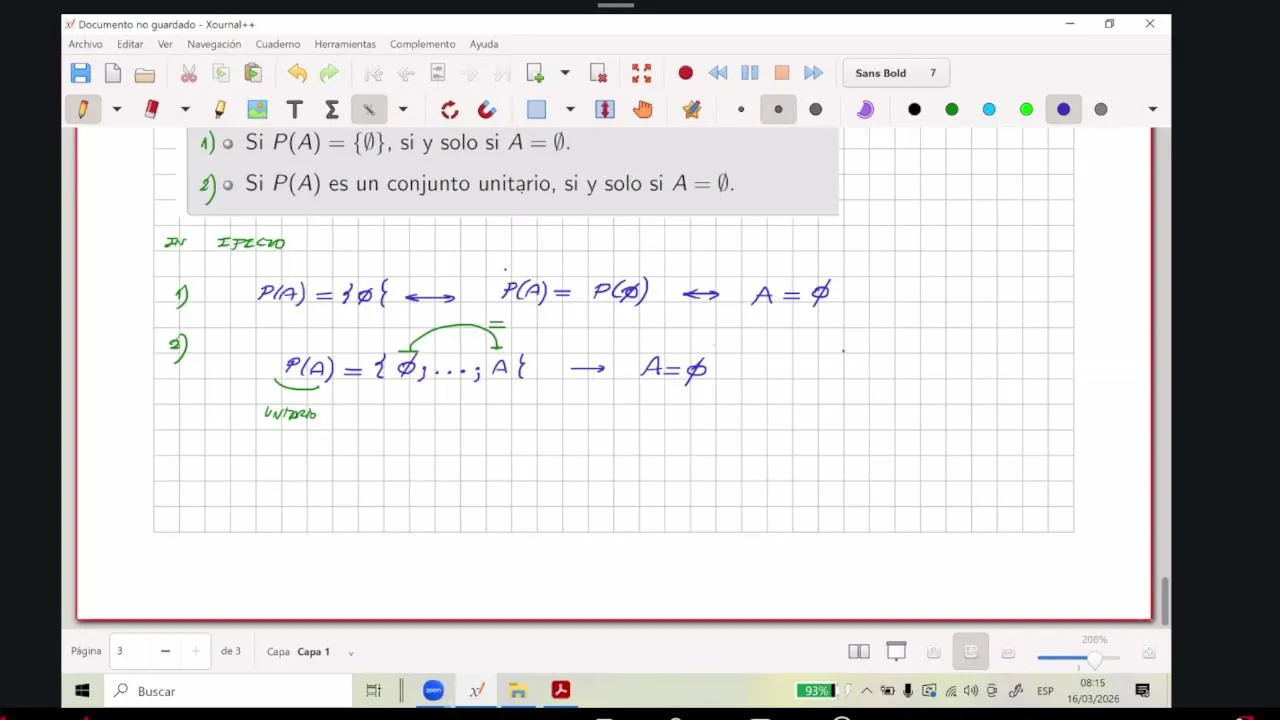 Documento no guardado - Xournal++
Archivo Editar Ver Navegación Cuaderno Herramientas Complemento Ayuda
Sans Bold 7
1) Si P(A) = {∅}, si y solo si A = ∅.
2) Si P(A) es un conjunto unitario, si y solo si A = ∅.
EN EFECTO
1) P(A) = {∅{ ↔ P(A) = P(∅) ↔ A = ∅
2)
=
P(A) = { ∅; ...; A { → A = ∅
UNITARIO
Página 3 de 3 Capa Capa 1
208%
Buscar
zoom
93%
ESP
08:15
16/03/2026